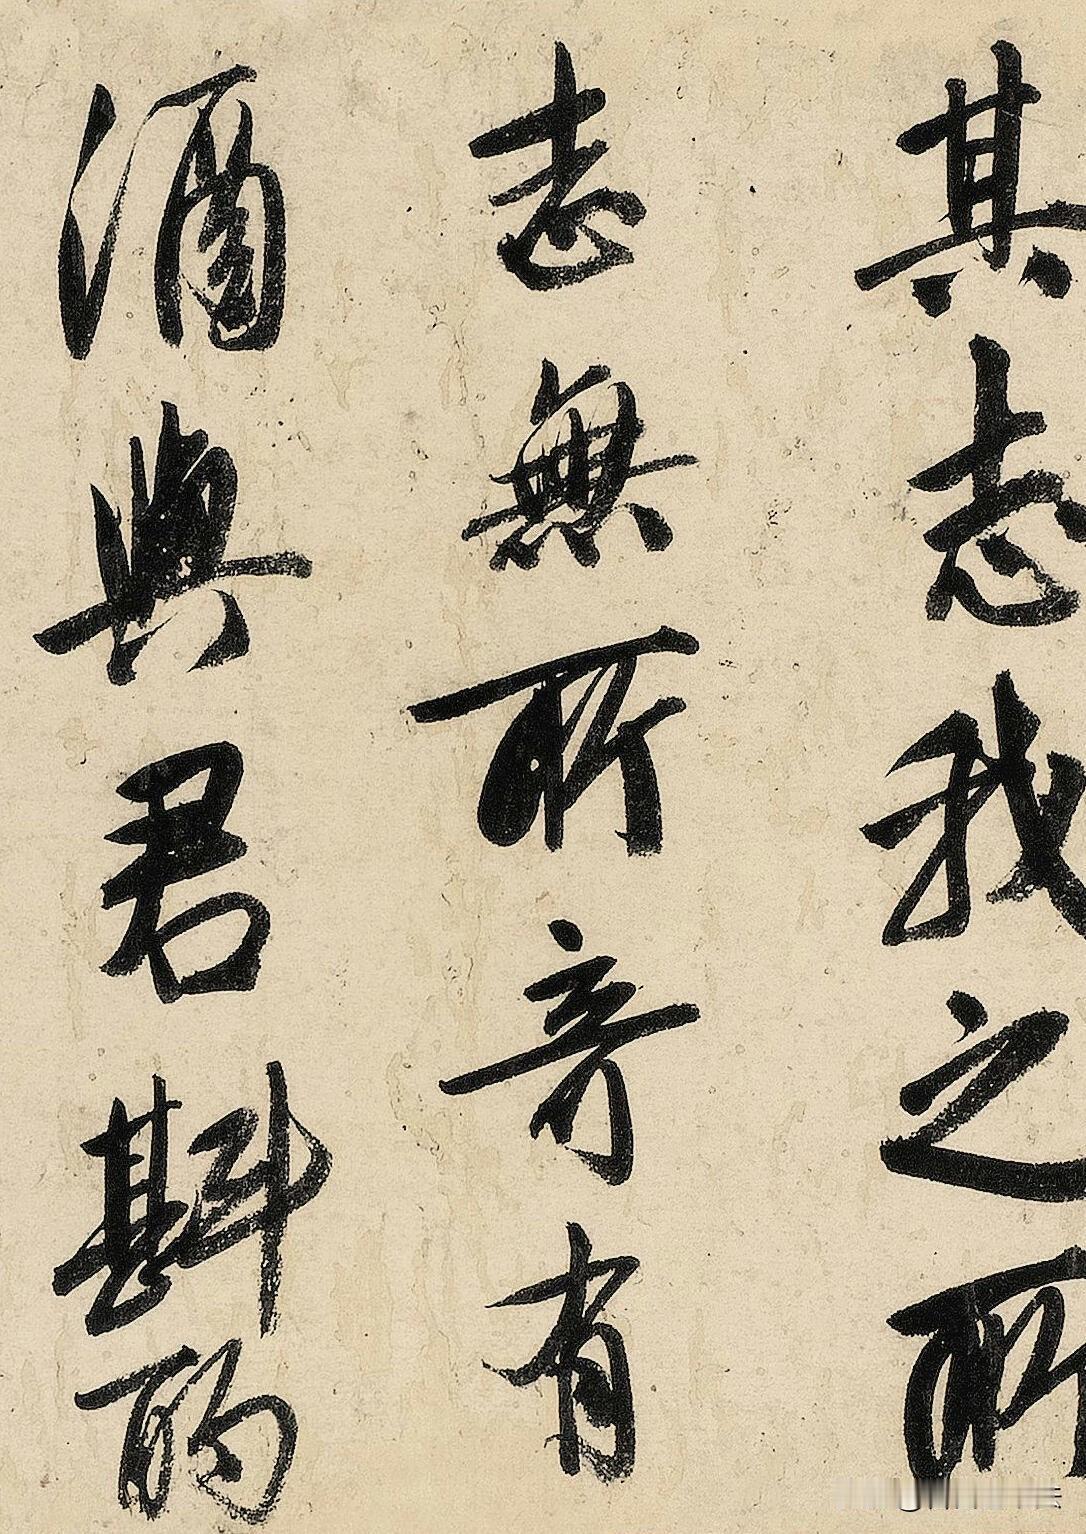 其志我之所
志無所寄有
酒與君斟酌